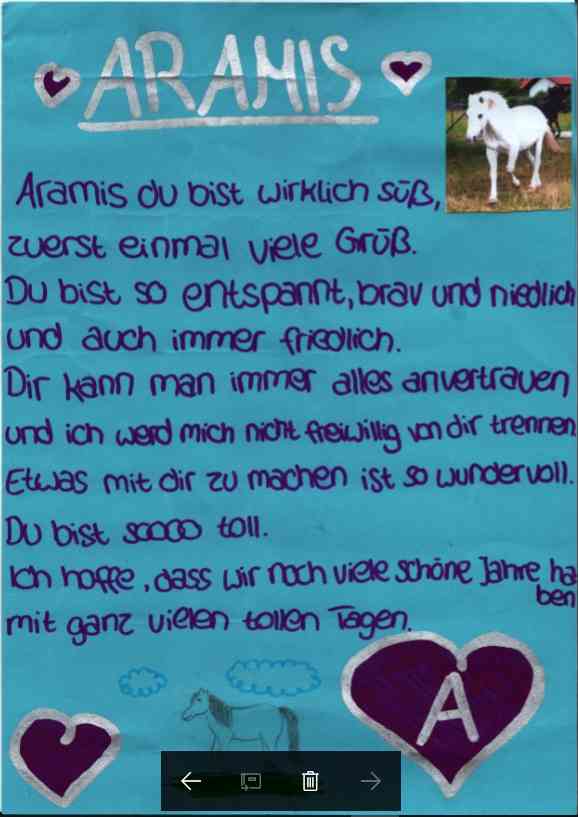 ARAMIS
Aramis du bist wirklich süß,
zuerst einmal viele Grüß.
Du bist so entspannt, brav und niedlich
und auch immer friedlich.
Dir kann man immer alles anvertrauen
und ich werd mich nicht freiwillig von dir trennen
Etwas mit dir zu machen ist so wundervoll.
Du bist soooo toll.
Ich hoffe, dass wir noch viele schöne Jahre ha
ben
mit ganz vielen tollen Tagen.
A